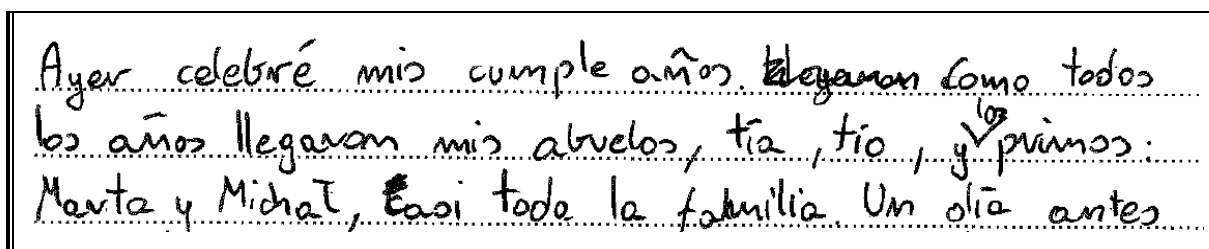 Ayer celebré mis cumple años. llegaron Como todos
los años llegaron mis abuelos, tía, tío, y los primos:
Marta y Michał, Casi toda la familia. Un día antes